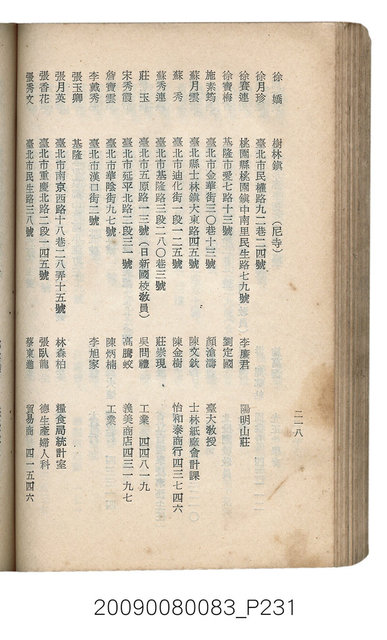 徐嬌 樹林鎮 （尼寺）
徐月珍 臺北市民權路九二巷二四號
徐寶連 桃園縣桃園鎮中南里民生路七九號 李慶君 陽明山莊
徐寶梅 基隆市愛七路十三號 劉定國
施素筠 臺北市金華街三〇巷十三號 顏滄濤 臺大教授
蘇月雲 臺北縣士林鎮大東路四五號 陳文欽 士林紙廠會計課
蘇秀 臺北市迪化街一段一二五號 陳金樹 怡和泰商行四三七四六
蘇秀連 臺北市基隆路三段二八〇巷三號 莊崇現
莊玉 臺北市五原路一三號（日新國校教員） 吳問禮 工業 四四八一九
宋秀霞 臺北市延平北路二段三二號 高騰蛟 義美商店四三一九七
詹寶雲 臺北市華陰街九七號 陳炳楠 工業
李戴秀 臺北市漢口街二號 李旭家
張玉卿 基隆
張月英 臺北市南京西路十八巷二八弄十五號 林森柏 糧食局統計室
張香花 臺北市重慶北路二段一四五號 張臥龍 德生產婦人科
張秀文 臺北市民生路三八號 蔡東 貿易商 四一五四六
二一八
20090080083_P231